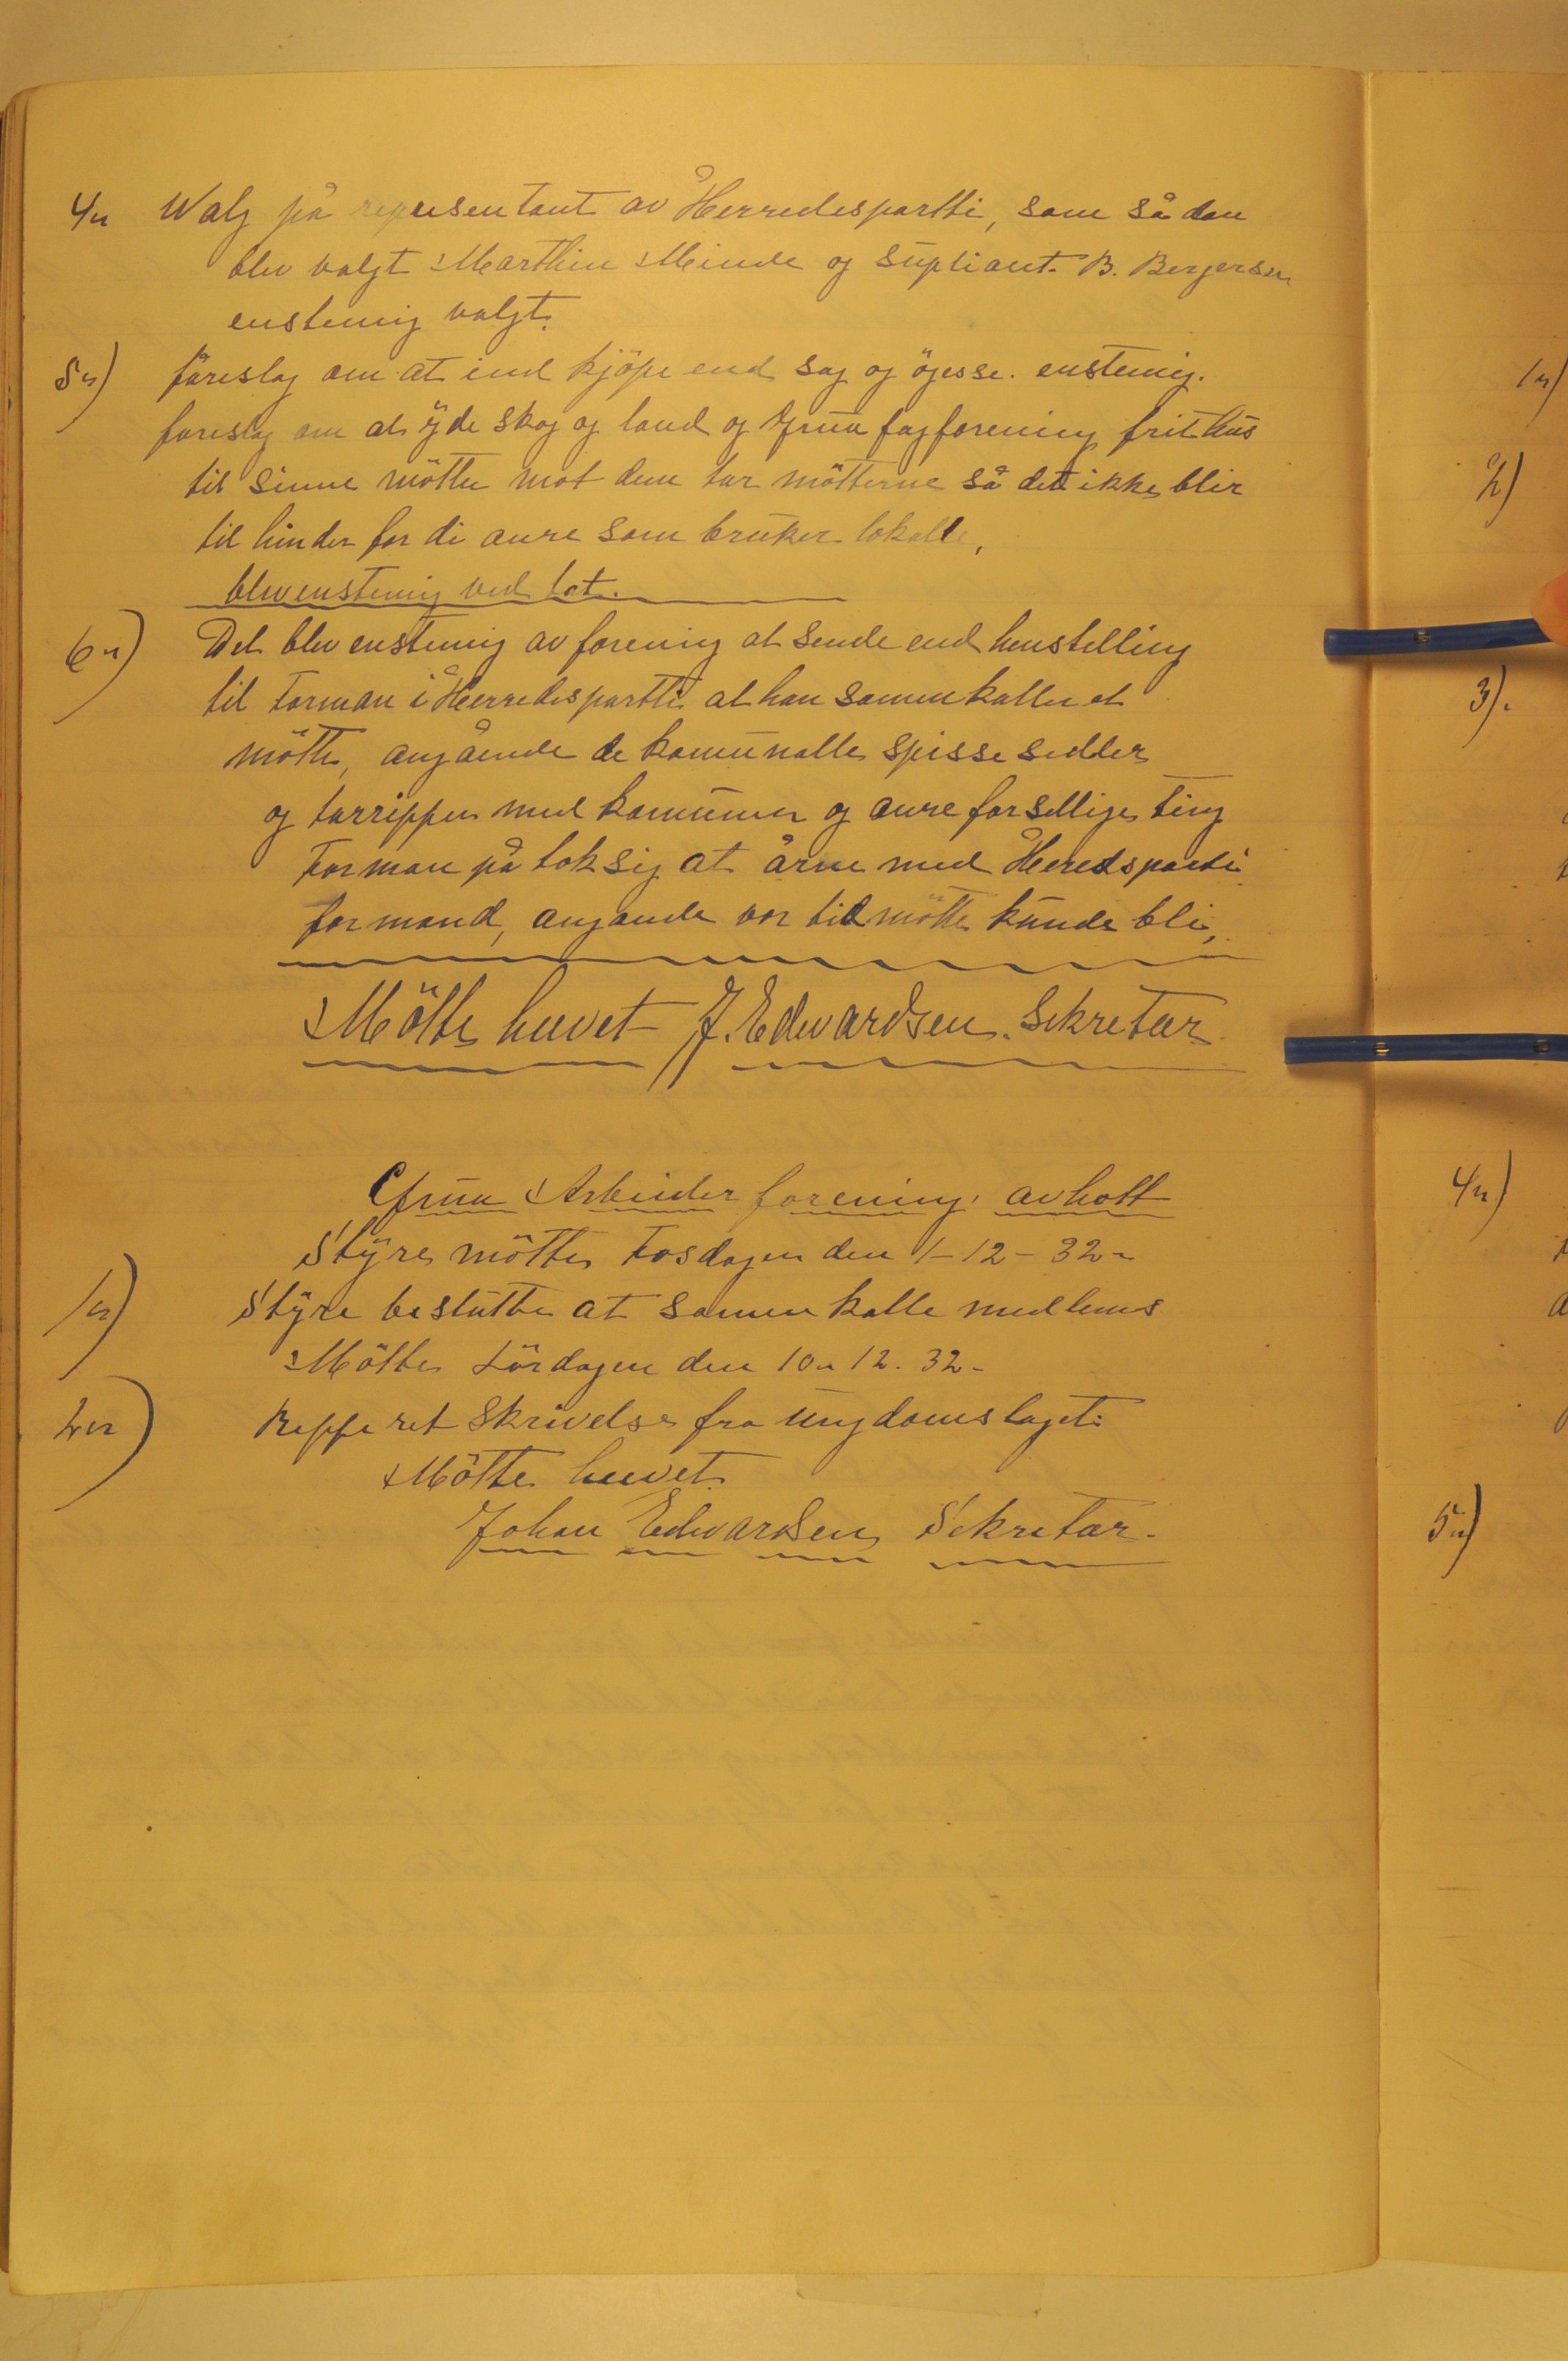 4n Walg på representant av Herredspartti, som sådan
blev valgt Marthin Minde og supliant. B. Bergersen
enstemig valgt.
5n) foreslag om at ind kjöpe end sag og ögsse. enstemig.
foreslag om at yde skog og land og Grua fagforening frit hus
til sinne mötter mot dem tar mötterne så det ikke blir
til hinder for di anre som bruker lokalle,
blev enstemig ved tat.
6n) Det blev enstemig av forening at sende end henstelling
til Forman i Herredspartti at han samenkaller et
mötte, angående de komunalle spisse sedler
og tarrippen med komunen og anre forsellige ting
Forman på tok sig at årne med Heredsparti
formand, angande vor tid mötte kunde bli,
Mötte hevet J. Edwardsen. Sekretær
Grua Arbeider forening, avholt
Styre mötte Tosdagen den 1-12-32-
1n) Styre beslutte at samenkalle medlems
Mötte Lördagen den 10n 12. 32-
2n) Refferet Skrivelse fra ungdomslaget.
Mötte hevet.
Johan Edwardsen Sekretær.
1n)
2)
3).
4n)
5n)